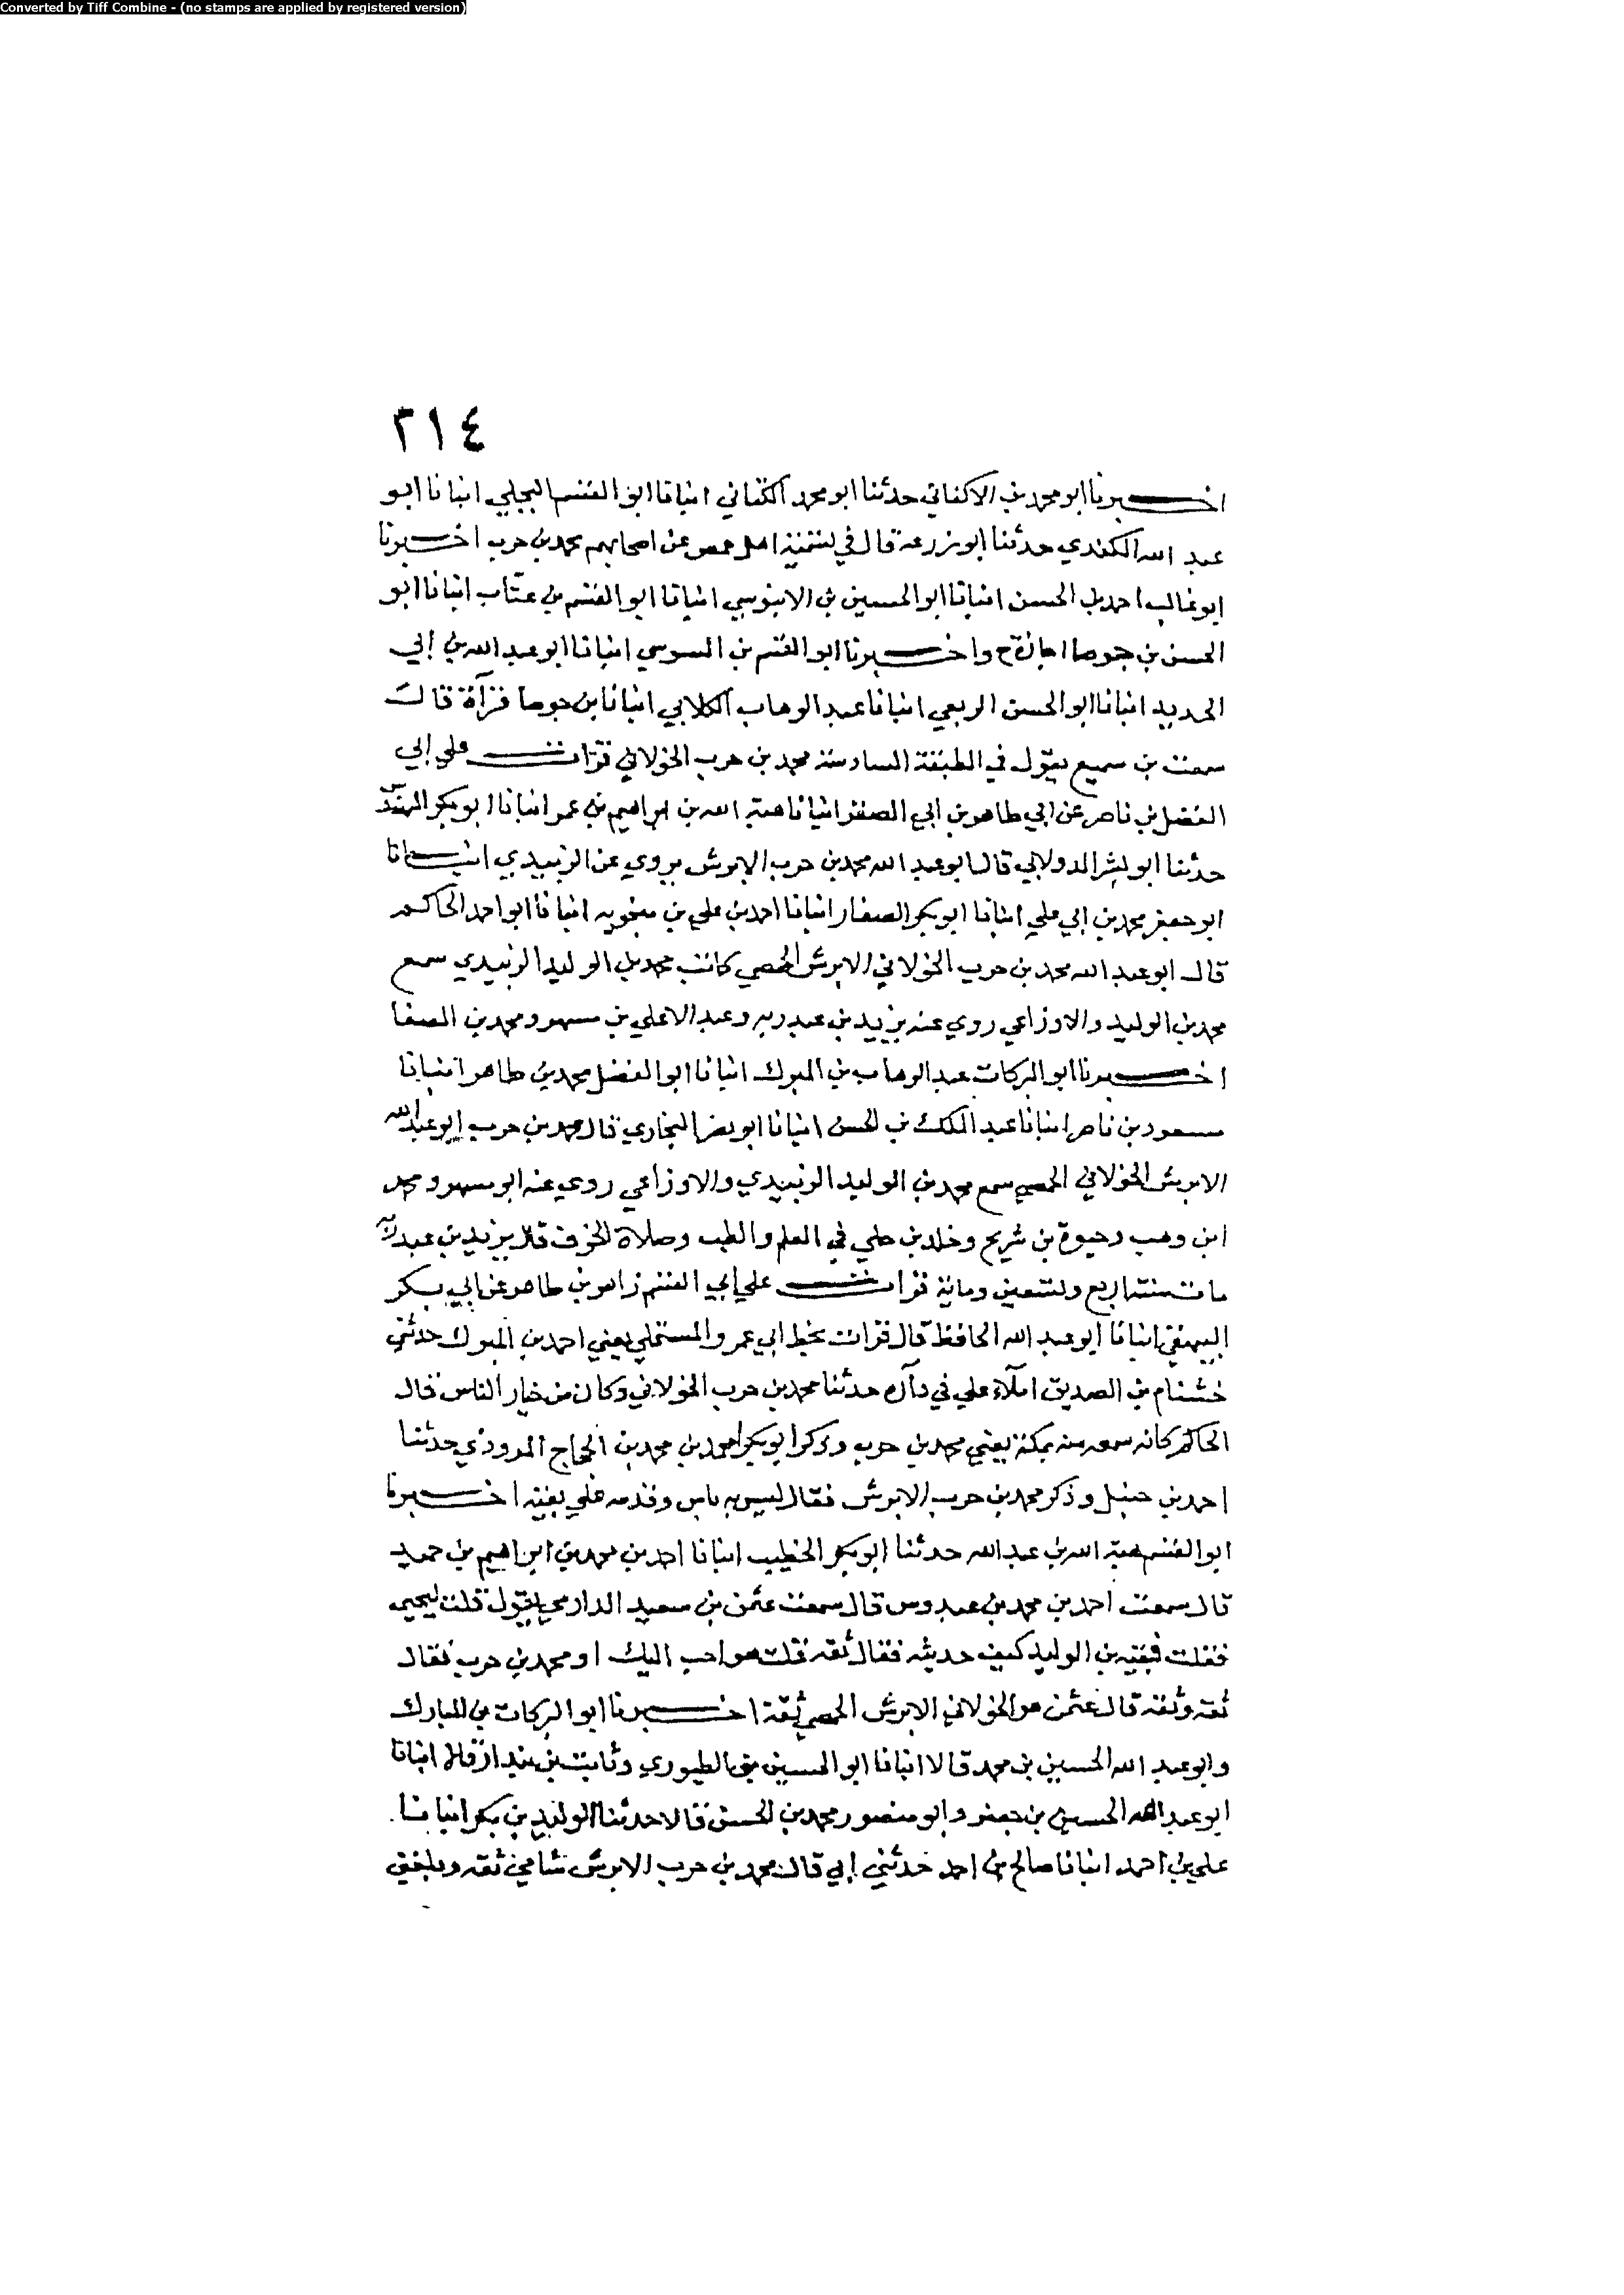 Converted by Tiff Combine - (no stamps are applied by registered version)
٣١٤
اخبرنا ابو محمد بن الاكفاني حدثنا ابو محمد الكتاني انبانا ابو القسم البجلي انبانا ابو
عبد الله الكندي حدثنا ابو زرعة قال في تسمية اهل حمص عن اصحابهم محمد بن حرب اخبرنا
ابو غالب احمد بن الحسن انبانا ابو الحسين بن الابنوسي انبانا ابو القسم بن عتاب انبانا ابو
الحسن بن جوصا اجازة ح واخبرنا ابو القسم بن السوسي انبانا ابو عبد الله بن ابي
الحديد انبانا ابو الحسن الربعي انبانا عبد الوهاب الكلابي انبانا بن جوصا قرآة قال
سمعت بن سميع يقول في الطبقة السادسة محمد بن حرب الخولاني قرات علي ابي
الفضل بن ناصر عن ابي طاهر بن ابي الصقر انبانا هبة الله بن ابراهيم بن عمر انبانا ابو بكر المهندس
حدثنا ابو بشر الدولابي قال ابو عبد الله محمد بن حرب الابرش يروي عن الزبيدي انبانا
ابو جعفر محمد بن ابي علي انبانا ابو بكر الصفار انبانا احمد بن علي بن منجويه انبانا ابو احمد الحاكم
قال ابو عبد الله محمد بن حرب الخولاني الابرش الحمصي كاتب محمد بن الوليد الزبيدي سمع
محمد بن الوليد والاوزاعي روي عنه يزيد بن عبد ربه وعبد الاعلي بن مسهر ومحمد بن المصفا
اخبرنا ابو البركات عبد الوهاب بن المبرك انبانا ابو الفضل محمد بن طاهر انبانا
مسعود بن ناصر انبانا عبد الملك بن الحسن انبانا ابو نصر البخاري قال محمد بن حرب ابو عبد الله
الابرش الخولاني الحمصي سمع محمد بن الوليد الزبيدي والاوزاعي روي عنه ابو مسهر ومحمد
ابن وهب وحيوة بن شريح وخلد بن خلي في العلم والطب وصلاة الخوف قال يزيد بن عبد ربه
مات سنة اربع وتسعين ومائة قرات علي ابي القسم زاهر بن طاهر عن ابي بكر
البيهقي انبانا ابو عبد الله الحافظ قال قرات بخط ابي عمرو المستملي يعني احمد بن المبرك حدثني
خشنام بن الصديق املآء علي في داره حدثنا محمد بن حرب الخولاني وكان من خيار الناس قال
الحاكم كانه سمعه منه بمكة يعني محمد بن حرب وذكر ابو بكر احمد بن محمد بن الحجاج المروذي حدثنا
احمد بن حنبل وذكر محمد بن حرب الابرش فقال ليس به باس وقدمه علي بقية اخبرنا
ابو القسم هبة الله بن عبد الله حدثنا ابو بكر الخطيب انبانا احمد بن محمد بن ابراهيم بن حميد
قال سمعت احمد بن محمد بن عبدوس قال سمعت عثمن بن سعيد الدارمي يقول قلت ليحيى
فقلت فبقية بن الوليد كيف حديثه فقال ثقة قلت هو احب اليك او محمد بن حرب فقال
ثقة وثقة قال عثمن هو الخولاني الابرش الحمصي ثقة اخبرنا ابو البركات بن المبارك
وابو عبد الله الحسين بن محمد قالا انبانا ابو الحسين بن الطيوري وثابت بن بندار قالا انبانا
ابو عبد الله الحسين بن جعفر وابو منصور محمد بن الحسن قالا حدثنا الوليد بن بكر انبانا
علي بن احمد انبانا صالح بن احمد حدثني ابي قال محمد بن حرب الابرش شامي ثقة وبلغني